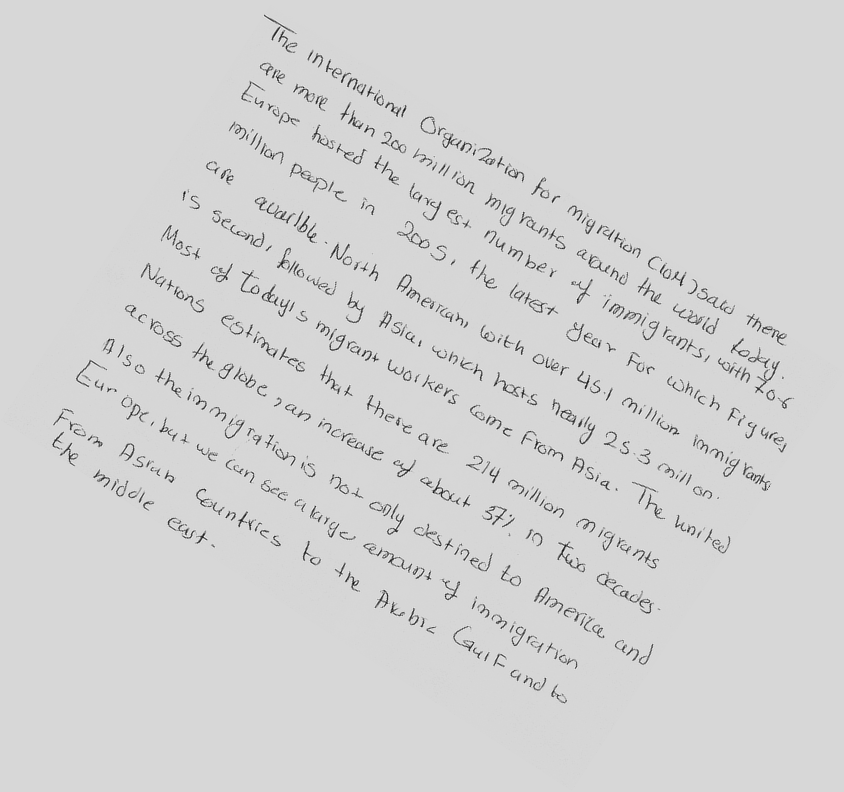 The international Organization for migration (IOM) said there
are more than 200 million migrants around the world today.
Europe hosted the largest number of immigrants, with 70.6
million people in 2005, the latest year for which figures
are availble. North American, with over 45.1 million immigrants
is second, followed by Asia, which hosts nearly 25.3 million.
Most of today's migrant workers come from Asia. The united
Nations estimates that there are 214 million migrants
across the globe, an increase of about 37% in Two decades.
Also the immigration is not only destined to America and
Europe, but we can see a large amount of immigration
From Asian Countries to the Arabic Gulf and to
the middle east.